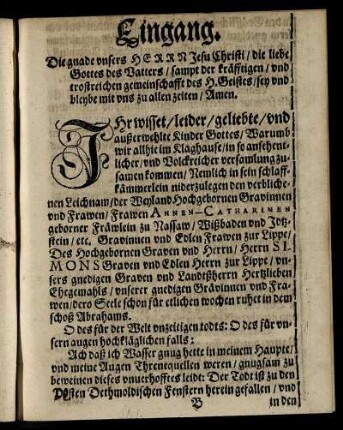 Eingang.
Die gnade vnsers HERRN Jesu Christi / die liebe
Gottes des Vatters / sampt der kräfftigen / vnd
trostreichen gemeinschafft des H. Geistes / sey vnd
bleybe mit vns zu allen zeiten / Amen.
IHr wisset / leider / geliebte / vnd
außerwehlte Kinder Gottes / Warumb
wir allhie im Klaghause / in so ansehent-
licher / vnd Volckreicher versamlung zu-
samen kommen / Nemlich in sein schlaff-
kämmerlein niderzulegen den verbliche-
nen Leichnam / der Weyland Hochgebornen Gravinnen
vnd Frawen / Frawen ANNEN-CATHARINEN
geborner Fräwlein zu Nassaw / Wißbaden vnd Jdtz-
stein / etc. Gravinnen vnd Edlen Frawen zur Lippe /
Des Hochgebornen Graven vnd Herrn / Herrn SI-
MONS Graven vnd Edlen Herrn zur Lippe / vn-
sers gnedigen Graven vnd Landeßherrn Hertzlieben
Ehegemahls / vnserer gnedigen Grävinnen vnd Fra-
wen / dero Seele schon für etlichen wochen ruhet in dem
schoß Abrahams.
O des für der Welt vnzeitigen todts: O des für vn-
sern augen hochkläglichen falls;
Ach daß ich Wasser gnug hette in meinem Haupte /
vnd meine Augen Threnequellen weren / gnugsam zu
beweinen dieses vnuerhofftes leidt: Der Todt ist zu den
Dethmoldischen Fenstern herein gefallen / vnd
B
in den